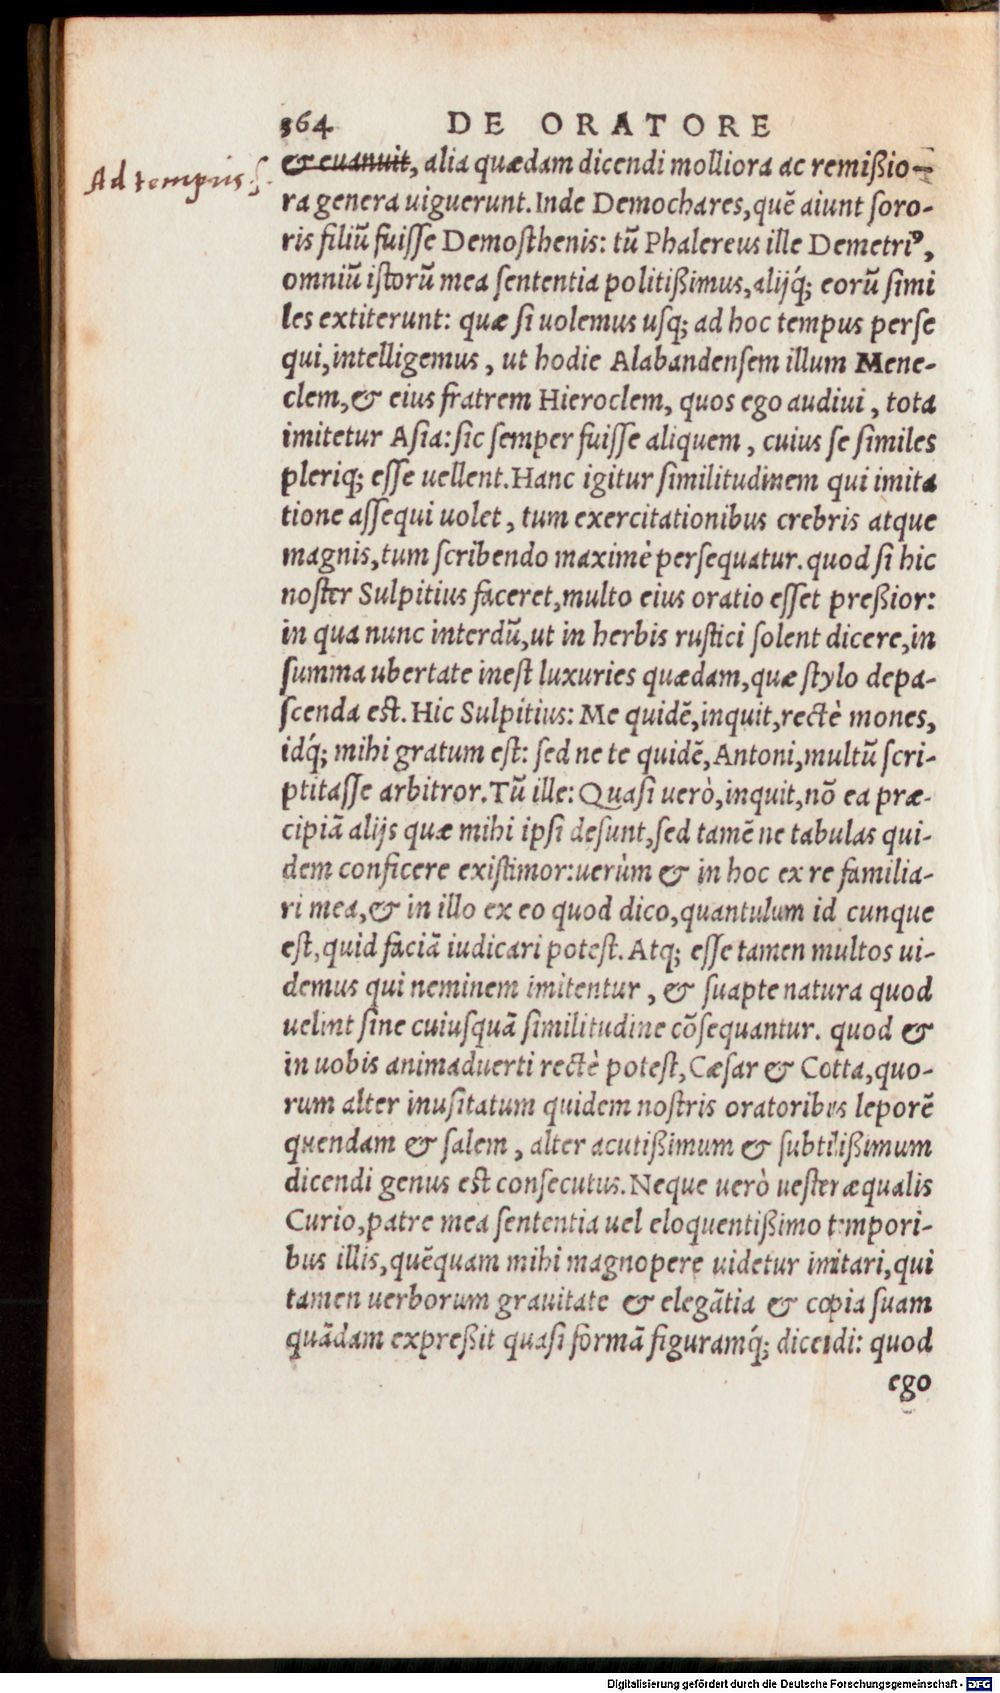 364 DE ORATORE
Ad tempus
& euanuit, alia quædam dicendi molliora ac remißio-
ra genera uiguerunt. Inde Demochares, quẽ aiunt ſoro-
ris filiũ fuiſſe Demoſthenis: tũ Phalereus ille Demetriꝰ,
omniũ iſtorũ mea ſententia politißimus, alijq́; eorũ ſimi
les extiterunt: quæ ſi uolemus uſq; ad hoc tempus perſe
qui, intelligemus, ut hodie Alabandenſem illum Mene-
clem, & eius fratrem Hieroclem, quos ego audiui, tota
imitetur Aſia: ſic ſemper fuiſſe aliquem, cuius ſe ſimiles
pleriq; eſſe uellent. Hanc igitur ſimilitudinem qui imita
tione aſſequi uolet, tum exercitationibus crebris atque
magnis, tum ſcribendo maximè perſequatur. quod ſi hic
noſter Sulpitius faceret, multo eius oratio eſſet preßior:
in qua nunc interdũ, ut in herbis ruſtici ſolent dicere, in
ſumma ubertate ineſt luxuries quædam, quæ ſtylo depa-
ſcenda eſt. Hic Sulpitius: Me quidẽ, inquit, rectè mones,
idq́; mihi gratum eſt: ſed ne te quidẽ, Antoni, multũ ſcri-
ptitaſſe arbitror. Tũ ille: Quaſi uerò, inquit, nõ ea præ-
cipiã alijs quæ mihi ipſi deſunt, ſed tamẽ ne tabulas qui-
dem conficere exiſtimor: uerùm & in hoc ex re familia-
ri mea, & in illo ex eo quod dico, quantulum id cunque
eſt, quid faciã iudicari poteſt. Atq; eſſe tamen multos ui-
demus qui neminem imitentur, & ſuapte natura quod
uelint ſine cuiuſquã ſimilitudine cõſequantur. quod &
in uobis animaduerti rectè poteſt, Cæſar & Cotta, quo-
rum alter inuſitatum quidem noſtris oratoribus leporẽ
quendam & ſalem, alter acutißimum & ſubtilißimum
dicendi genus eſt conſecutus. Neque uerò ueſter æqualis
Curio, patre mea ſententia uel eloquentißimo tempori-
bus illis, quẽquam mihi magnopere uidetur imitari, qui
tamen uerborum grauitate & elegãtia & copia ſuam
quãdam expreßit quaſi formã figuramq́; dicendi: quod
ego
Digitalisierung gefördert durch die Deutsche Forschungsgemeinschaft - DFG